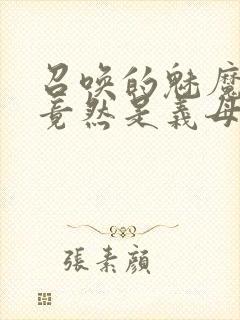 召唤的魅魔
竟然是義母
張素顔